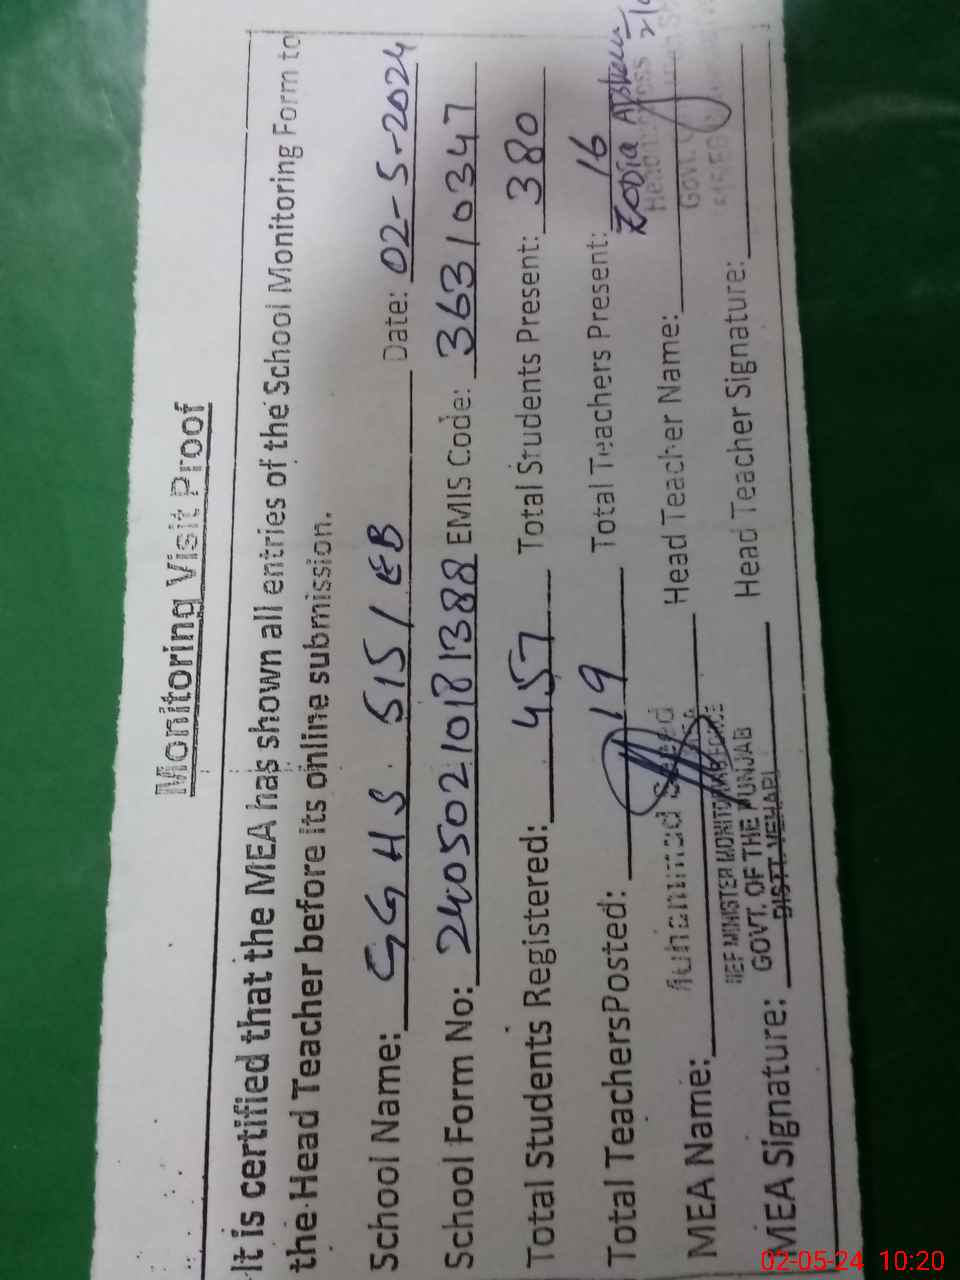 Monitoring Visit Proof
It is certified that the MEA has shown all entries of the School Monitoring Form to
the Head Teacher before its online submission.
School Name: GGHS 515/EB Date: 02-5-2024
School Form No: 24050210181388 EMIS Code: 36310347
Total Students Registered: 457 Total Students Present: 380
Total TeachersPosted: 19 Total Teachers Present: 16
MEA Name: Muhammad Saeed Head Teacher Name: Zobia
MINISTER MONITORING FORCE
GOVT. OF THE PUNJAB
DISTT. VEHARI
MEA Signature: Head Teacher Signature:
02-05-24 10:20